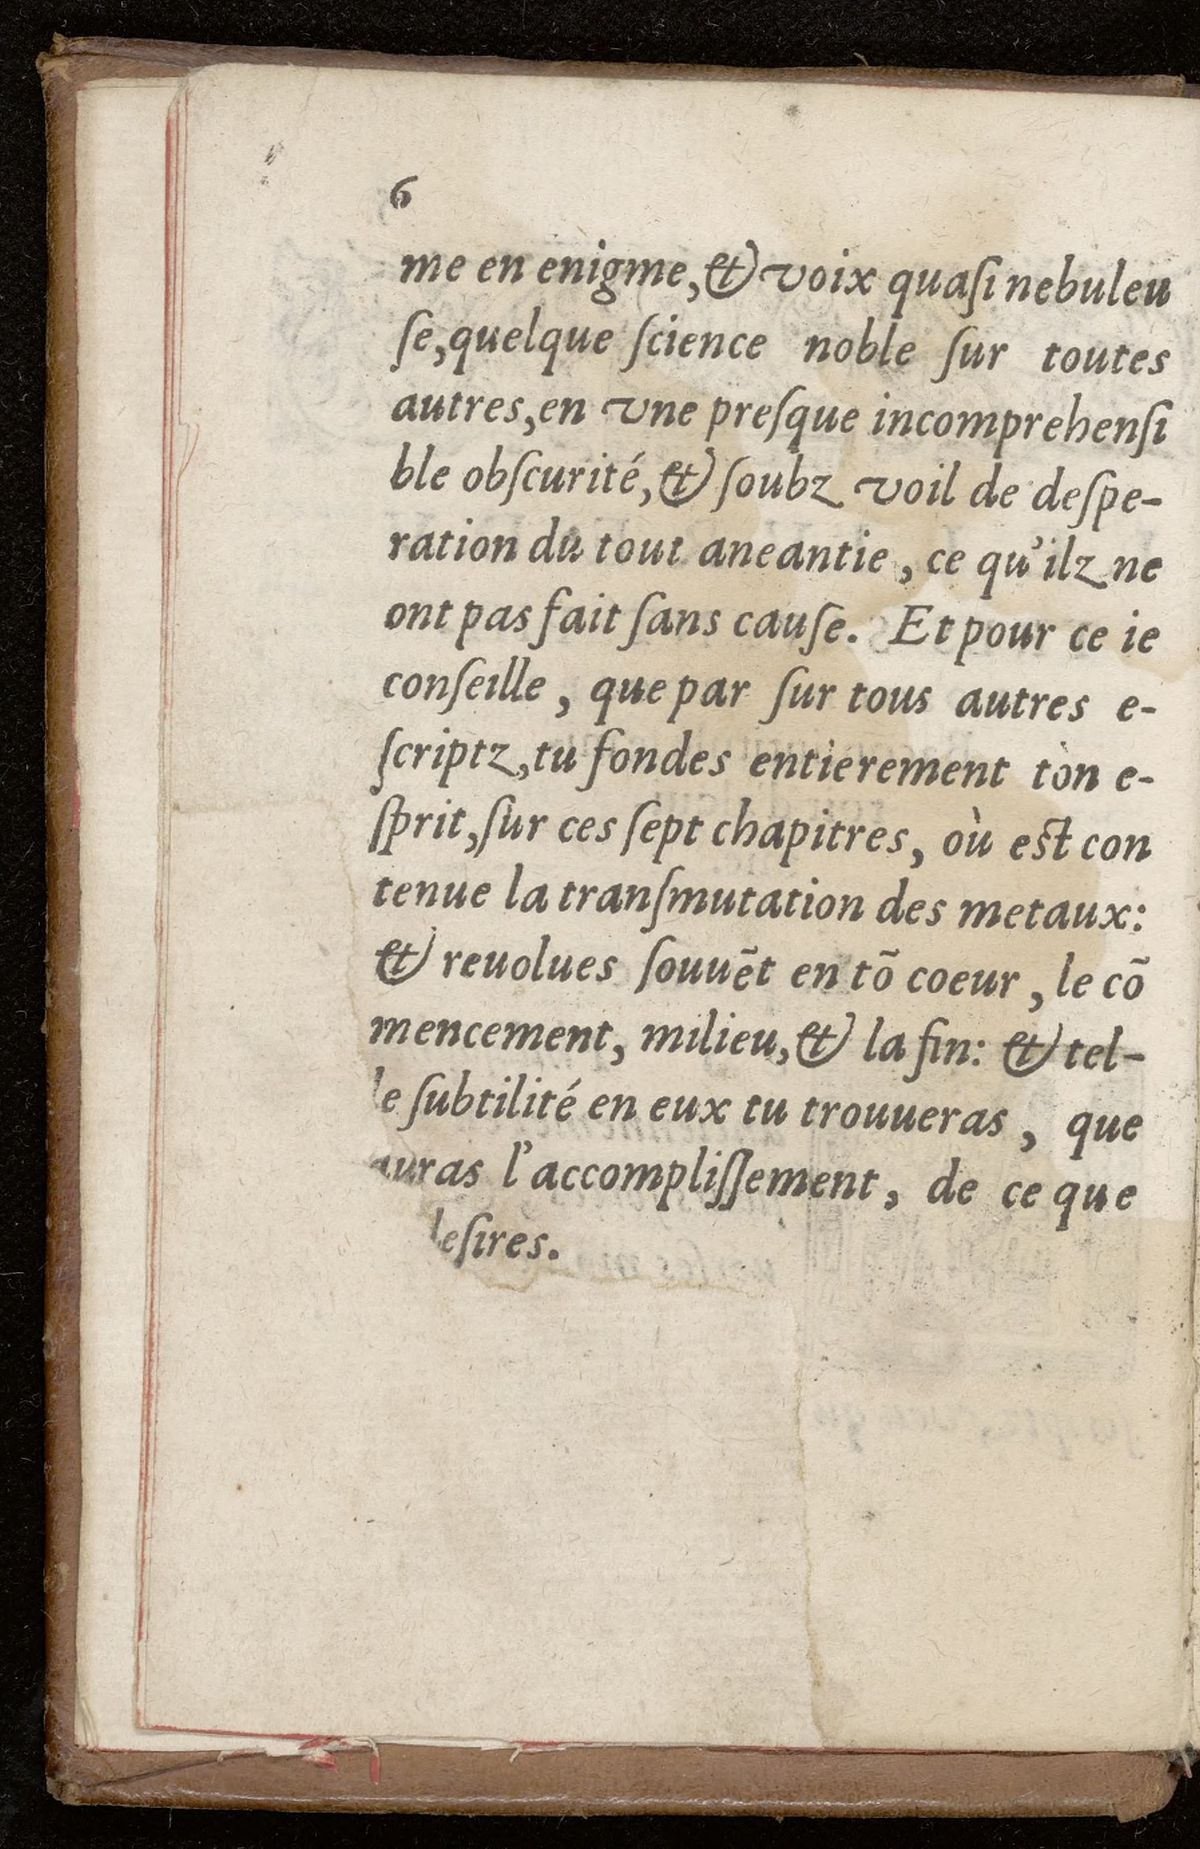 6
me en enigme, & voix quaſi nebuleu
ſe, quelque ſcience noble ſur toutes
autres, en vne preſque incomprehenſi
ble obſcurité, & ſoubz voil de deſpe-
ration du tout aneantie, ce qu'ilz ne
ont pas fait ſans cauſe. Et pour ce ie
conſeille, que par ſur tous autres e-
ſcriptz, tu fondes entierement ton e-
ſprit, ſur ces ſept chapitres, où eſt con
tenue la tranſmutation des metaux:
& reuolues ſouuẽt en tõ coeur, le cõ
mencement, milieu, & la fin: & tel-
le ſubtilité en eux tu trouueras, que
auras l'accompliſſement, de ce que
eſires.